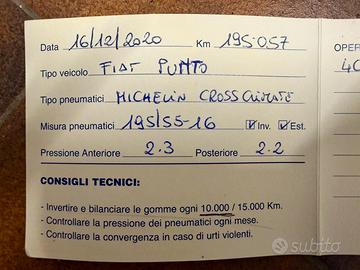 Data 16/12/2020 Km 195.057
Tipo veicolo FIAT PUNTO
Tipo pneumatici MICHELIN CROSSCLIMATE
Misura pneumatici 195/55-16 Inv. Est.
Pressione Anteriore 2.3 Posteriore 2.2
CONSIGLI TECNICI:
- Invertire e bilanciare le gomme ogni 10.000 / 15.000 Km.
- Controllare la pressione dei pneumatici ogni mese.
- Controllare la convergenza in caso di urti violenti.
OPER
subito